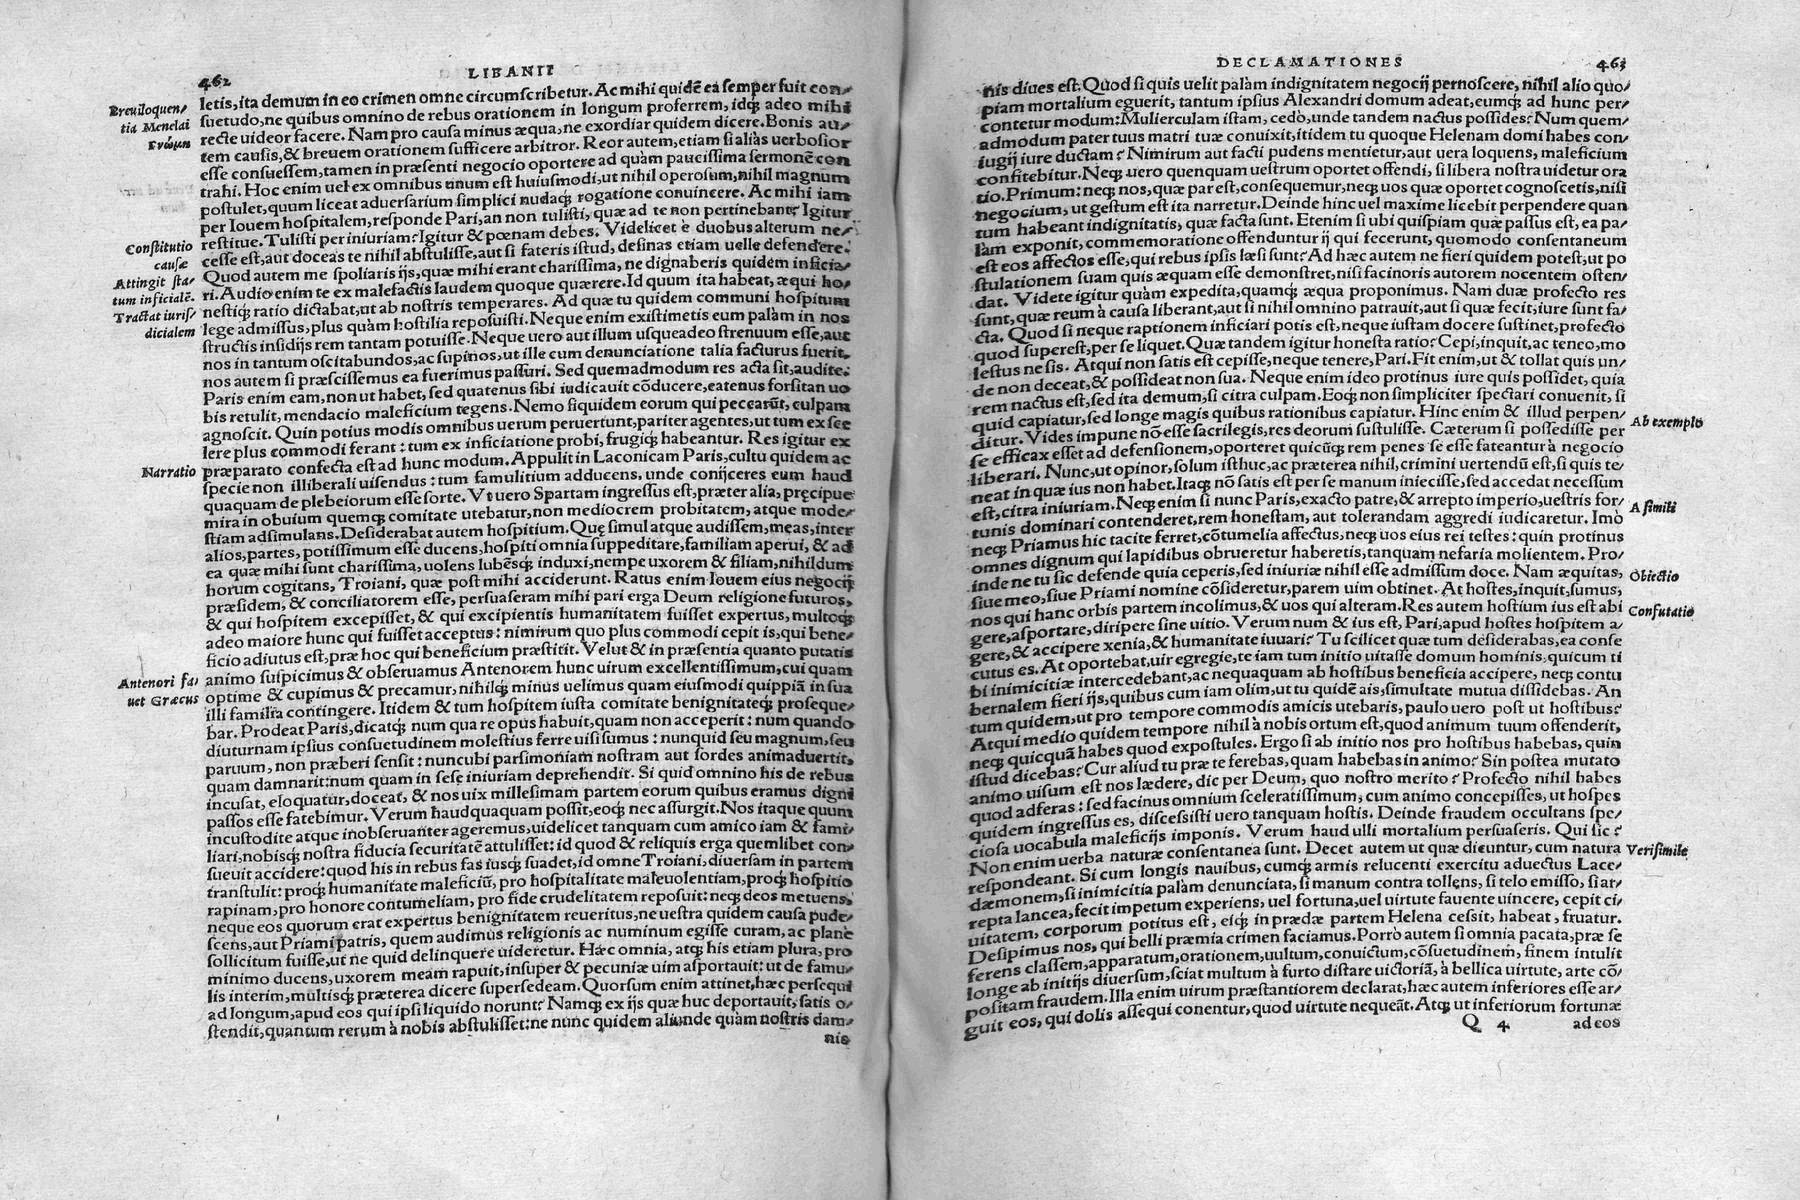 462
LIBANII
letis, ita demum in eo crimen omne circumscribetur. Ac mihi quidē ea semper fuit con/
suetudo, ne quibus omnino de rebus orationem in longum proferrem, idq́; adeo mihi
recte uideor facere. Nam pro causa minus æqua, ne exordiar quidem dicere. Bonis au/
tem causis, & breuem orationem sufficere arbitror. Reor autem, etiam si aliàs uerbosior
esse consuessem, tamen in præsenti negocio oportere ad quàm paucissima sermonē con
trahi. Hoc enim uel ex omnibus unum est huiusmodi, ut nihil operosum, nihil magnum
postulet, quum liceat aduersarium simplici nudaq́; rogatione conuincere. Ac mihi iam
per Iouem hospitalem, responde Pari, an non tulisti, quæ ad te non pertinebant? Igitur
restitue. Tulisti per iniuriam? Igitur & pœnam debes. Videlicet è duobus alterum ne/
cesse est, aut doceas te nihil abstulisse, aut si fateris istud, desinas etiam uelle defendere.
Quod autem me spoliaris ijs, quæ mihi erant charissima, ne dignaberis quidem inficia/
ri. Audio enim te ex malefactis laudem quoque quærere. Id quum ita habeat, æqui ho/
nestiq́; ratio dictabat, ut ab nostris temperares. Ad quæ tu quidem communi hospitum
lege admissus, plus quàm hostilia reposuisti. Neque enim existimetis eum palàm in nos
structis insidijs rem tantam potuisse. Neque uero aut illum usqueadeo strenuum esse, aut
nos in tantum oscitabundos, ac supinos, ut ille cum denunciatione talia facturus fuerit,
nos autem si præscissemus ea fuerimus passuri. Sed quemadmodum res acta sit, audite.
Paris enim eam, non ut habet, sed quatenus sibi iudicauit cōducere, eatenus forsitan uo
bis retulit, mendacio maleficium tegens. Nemo siquidem eorum qui peccarūt, culpam
agnoscit. Quin potius modis omnibus uerum peruertunt, pariter agentes, ut tum ex sce
lere plus commodi ferant: tum ex inficiatione probi, frugiq́; habeantur. Res igitur ex
præparato confecta est ad hunc modum. Appulit in Laconicam Paris, cultu quidem ac
specie non illiberali uisendus: tum famulitium adducens, unde conijceres eum haud
quaquam de plebeiorum esse sorte. Vt uero Spartam ingressus est, præter alia, pręcipue
mira in obuium quemq́; comitate utebatur, non mediocrem probitatem, atque mode/
stiam adsimulans. Desiderabat autem hospitium. Quę simul atque audissem, meas, inter
alios, partes, potissimum esse ducens, hospiti omnia suppeditare, familiam aperui, & ad
ea quæ mihi sunt charissima, uolens lubēsq́; induxi, nempe uxorem & filiam, nihildum
horum cogitans, Troiani, quæ post mihi acciderunt. Ratus enim Iouem eius negocij
præsidem, & conciliatorem esse, persuaseram mihi pari erga Deum religione futuros,
& qui hospitem excepisset, & qui excipientis humanitatem fuisset expertus, multoq́;
adeo maiore hunc qui fuisset acceptus: nimirum quo plus commodi cepit is, qui bene/
ficio adiutus est, præ hoc qui beneficium præstitit. Velut & in præsentia quanto putatis
animo suspicimus & obseruamus Antenorem hunc uirum excellentissimum, cui quam
optime & cupimus & precamur, nihilq́; minus uelimus quam eiusmodi quippiā in sua
illi familia contingere. Itidem & tum hospitem iusta comitate benignitateq́; proseque/
bar. Prodeat Paris, dicatq́; num qua re opus habuit, quam non acceperit: num quando
diuturnam ipsius consuetudinem molestius ferre uisi sumus: nunquid seu magnum, seu
paruum, non præberi sensit: nuncubi parsimoniam nostram aut sordes animaduertit,
quam damnarit: num quam in sese iniuriam deprehendit. Si quid omnino his de rebus
incusat, eloquatur, doceat, & nos uix millesimam partem eorum quibus eramus digni
passos esse fatebimur. Verum haudquaquam possit, eoq́; nec assurgit. Nos itaque quum
incustodite atque inobseruanter ageremus, uidelicet tanquam cum amico iam & fami/
liari, nobisq́; nostra fiducia securitatē attulisset: id quod & reliquis erga quemlibet con/
sueuit accidere: quod his in rebus fas iusq́; suadet, id omne Troiani, diuersam in partem
transtulit: proq́; humanitate maleficiū, pro hospitalitate maleuolentiam, proq́; hospitio
rapinam, pro honore contumeliam, pro fide crudelitatem reposuit: neq́; deos metuens,
neque eos quorum erat expertus benignitatem reueritus, ne uestra quidem causa pude/
scens, aut Priami patris, quem audimus religionis ac numinum egisse curam, ac plane
sollicitum fuisse, ut ne quid delinquere uideretur. Hæc omnia, atq́; his etiam plura, pro
minimo ducens, uxorem meam rapuit, insuper & pecuniæ uim asportauit: ut de famu/
lis interim, multisq́; præterea dicere supersedeam. Quorsum enim attinet, hæc persequi
ad longum, apud eos qui ipsi liquido norunt? Namq́; ex ijs quæ huc deportauit, satis o/
stendit, quantum rerum à nobis abstulisset: ne nunc quidem aliunde quàm nostris dam/
nis
Breuiloquen/
tia Menelai
Constitutio
causæ
Attingit sta/
tum inficialē.
Tractat iuris/
dicialem
Narratio
Antenori fa/
uet Græcus
DECLAMATIONES
463
nis diues est. Quod si quis uelit palàm indignitatem negocij pernoscere, nihil alio quo/
piam mortalium eguerit, tantum ipsius Alexandri domum adeat, eumq́; ad hunc per/
contetur modum: Mulierculam istam, cedò, unde tandem nactus possides? Num quem/
admodum pater tuus matri tuæ conuixit, itidem tu quoque Helenam domi habes con/
iugij iure ductam? Nimirum aut facti pudens mentietur, aut uera loquens, maleficium
confitebitur. Neq́; uero quenquam uestrum oportet offendi, si libera nostra uidetur ora
tio. Primum: neq́; nos, quæ par est, consequemur, neq́; uos quæ oportet cognoscetis, nisi
negocium, ut gestum est ita narretur. Deinde hinc uel maxime licebit perpendere quan
tum habeant indignitatis, quæ facta sunt. Etenim si ubi quispiam quæ passus est, ea pa/
làm exponit, commemoratione offenduntur ij qui fecerunt, quomodo consentaneum
est eos affectos esse, qui rebus ipsis læsi sunt? Ad hæc autem ne fieri quidem potest, ut po
stulationem suam quis æquam esse demonstret, nisi facinoris autorem nocentem osten/
dat. Videte igitur quàm expedita, quamq́; æqua proponimus. Nam duæ profecto res
sunt, quæ reum à causa liberant, aut si nihil omnino patrauit, aut si quæ fecit, iure sunt fa/
cta. Quod si neque raptionem inficiari potis est, neque iustam docere sustinet, profecto
quod superest, per se liquet. Quæ tandem igitur honesta ratio? Cepi, inquit, ac teneo, mo
lestus ne sis. Atqui non satis est cepisse, neque tenere, Pari. Fit enim, ut & tollat quis un/
de non deceat, & possideat non sua. Neque enim ideo protinus iure quis possidet, quia
rem nactus est, sed ita demum, si citra culpam. Eoq́; non simpliciter spectari conuenit, si
quid capiatur, sed longe magis quibus rationibus capiatur. Hinc enim & illud perpen/
ditur. Vides impune nō esse sacrilegis, res deorum sustulisse. Cæterum si possedisse per
se efficax esset ad defensionem, oporteret quicūq́; rem penes se esse fateantur à negocio
liberari. Nunc, ut opinor, solum isthuc, ac præterea nihil, crimini uertendū est, si quis te/
neat in quæ ius non habet. Itaq́; nō satis est per se manum iniecisse, sed accedat necessum
est, citra iniuriam. Neq́; enim si nunc Paris, exacto patre, & arrepto imperio, uestris for/
tunis dominari contenderet, rem honestam, aut tolerandam aggredi iudicaretur. Imò
neq́; Priamus hic tacite ferret, cōtumelia affectus, neq́; uos eius rei testes: quin protinus
omnes dignum qui lapidibus obrueretur haberetis, tanquam nefaria molientem. Pro/
inde ne tu sic defende quia ceperis, sed iniuriæ nihil esse admissum doce. Nam æquitas,
siue meo, siue Priami nomine cōsideretur, parem uim obtinet. At hostes, inquit, sumus,
nos qui hanc orbis partem incolimus, & uos qui alteram. Res autem hostium ius est abi
gere, asportare, diripere sine uitio. Verum num & ius est, Pari, apud hostes hospitem a/
gere, & accipere xenia, & humanitate iuuari? Tu scilicet quæ tum desiderabas, ea conse
cutus es. At oportebat, uir egregie, te iam tum initio uitasse domum hominis, quicum ti
bi inimicitiæ intercedebant, ac nequaquam ab hostibus beneficia accipere, neq́; contu
bernalem fieri ijs, quibus cum iam olim, ut tu quidē ais, simultate mutua dissidebas. An
tum quidem, ut pro tempore commodis amicis utebaris, paulo uero post ut hostibus?
Atqui medio quidem tempore nihil à nobis ortum est, quod animum tuum offenderit,
neq́; quicquā habes quod expostules. Ergo si ab initio nos pro hostibus habebas, quin
istud dicebas? Cur aliud tu præ te ferebas, quam habebas in animo? Sin postea mutato
animo uisum est nos lædere, dic per Deum, quo nostro merito? Profecto nihil habes
quod adferas: sed facinus omnium sceleratissimum, cum animo concepisses, ut hospes
quidem ingressus es, discessisti uero tanquam hostis. Deinde fraudem occultans spe/
ciosa uocabula maleficijs imponis. Verum haud ulli mortalium persuaseris. Qui sic?
Non enim uerba naturæ consentanea sunt. Decet autem ut quæ dicuntur, cum natura
respondeant. Si cum longis nauibus, cumq́; armis relucenti exercitu aduectus Lace/
dæmonem, si inimicitia palàm denunciata, si manum contra tollens, si telo emisso, si ar/
repta lancea, fecit impetum experiens, uel fortuna, uel uirtute fauente uincere, cepit ci/
uitatem, corporum potitus est, eiq́; in prædæ partem Helena cessit, habeat, fruatur.
Desipimus nos, qui belli præmia crimen faciamus. Porrò autem si omnia pacata, præ se
ferens classem, apparatum, orationem, uultum, conuictum, cōsuetudinem, finem intulit
longe ab initijs diuersum, sciat multum à furto distare uictoriā, à bellica uirtute, arte cō/
positam fraudem. Illa enim uirum præstantiorem declarat, hæc autem inferiores esse ar/
guit eos, qui dolis assequi conentur, quod uirtute nequeāt. Atq́; ut inferiorum fortunæ
Q 4
ad eos
Ab exemplo
A simili
Obiectio
Confutatio
Verisimile